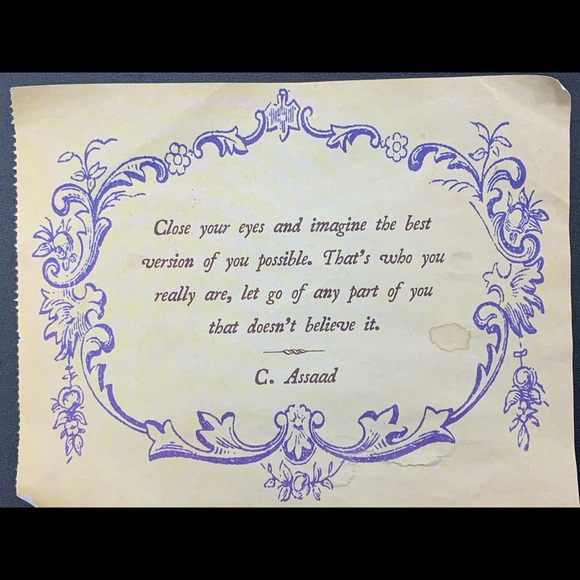 Close your eyes and imagine the best
version of you possible. That's who you
really are, let go of any part of you
that doesn't believe it.
C. Assaad